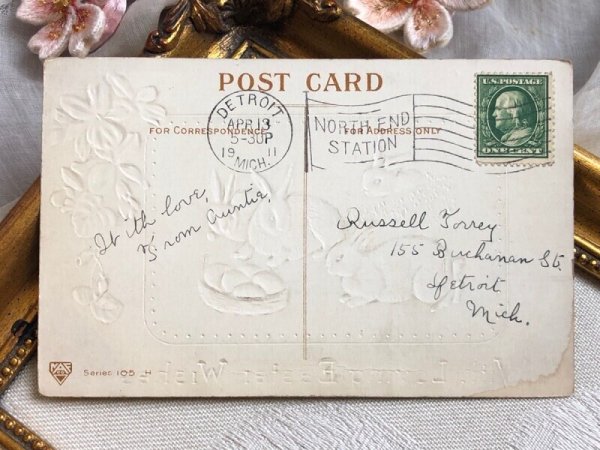 POST CARD
U.S. POSTAGE
ONE CENT
DETROIT
APR 13
5-30P
1911
MICH.
NORTH END
STATION
FOR CORRESPONDENCE
FOR ADDRESS ONLY
With love,
From Auntie,
Russell Torrey
155 Buchanan St.
Detroit
Mich.
Series 105 H
Easter Wishes